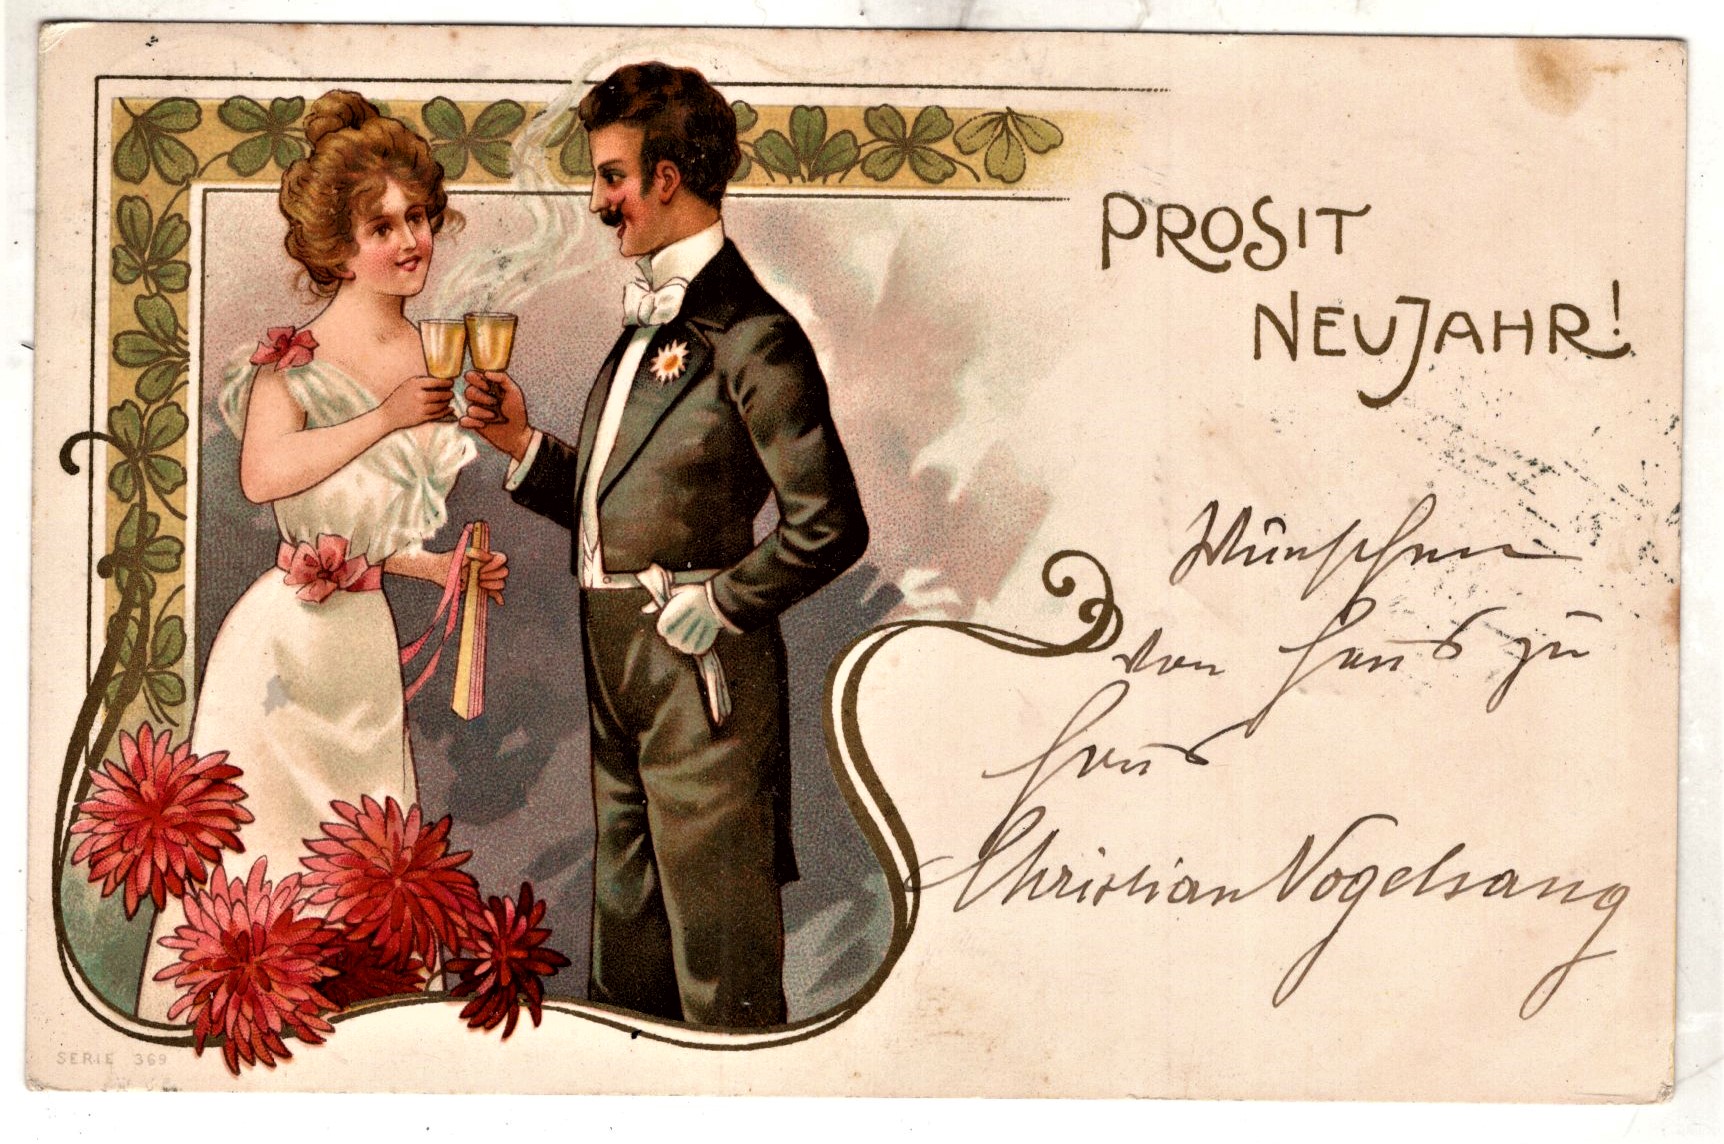 PROSIT
NEUJAHR!
Wünschen
von Haus zu
Haus
Christian Vogelsang
SERIE 369